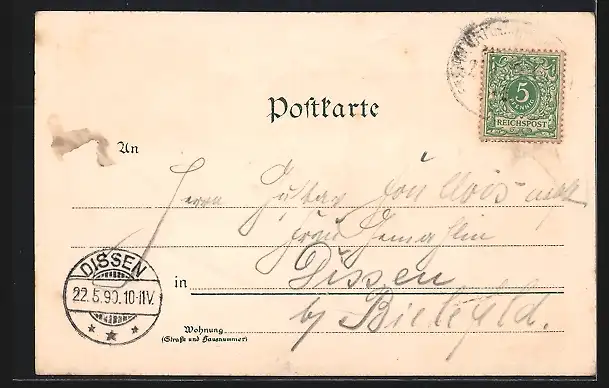 Postkarte
5
PFENNIG
REICHSPOST
An
Herrn Gustav von
Frau Gemahlin
DISSEN
22.5.90.10-11V.
in Dissen
by Bielefeld.
Wohnung
(Straße und Hausnummer)